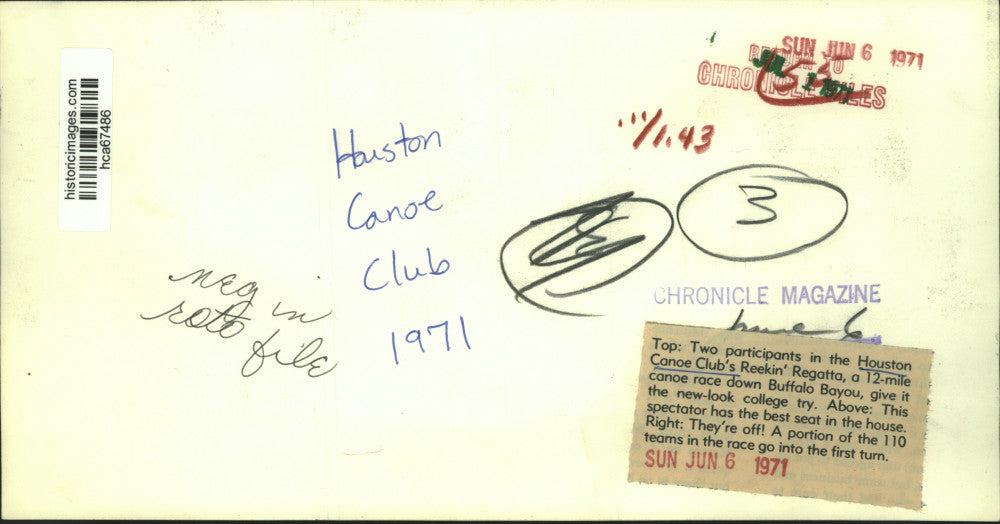 historicimages.com
hca67486
SUN JUN 6 1971
RETURN TO
JUL 1 1971
CHRONICLE FILES
11/1.43
Houston
Canoe
Club
1971
neg in
roto file
3
CHRONICLE MAGAZINE
June 6
Top: Two participants in the Houston
Canoe Club's Reekin' Regatta, a 12-mile
canoe race down Buffalo Bayou, give it
the new-look college try. Above: This
spectator has the best seat in the house.
Right: They're off! A portion of the 110
teams in the race go into the first turn.
SUN JUN 6 1971